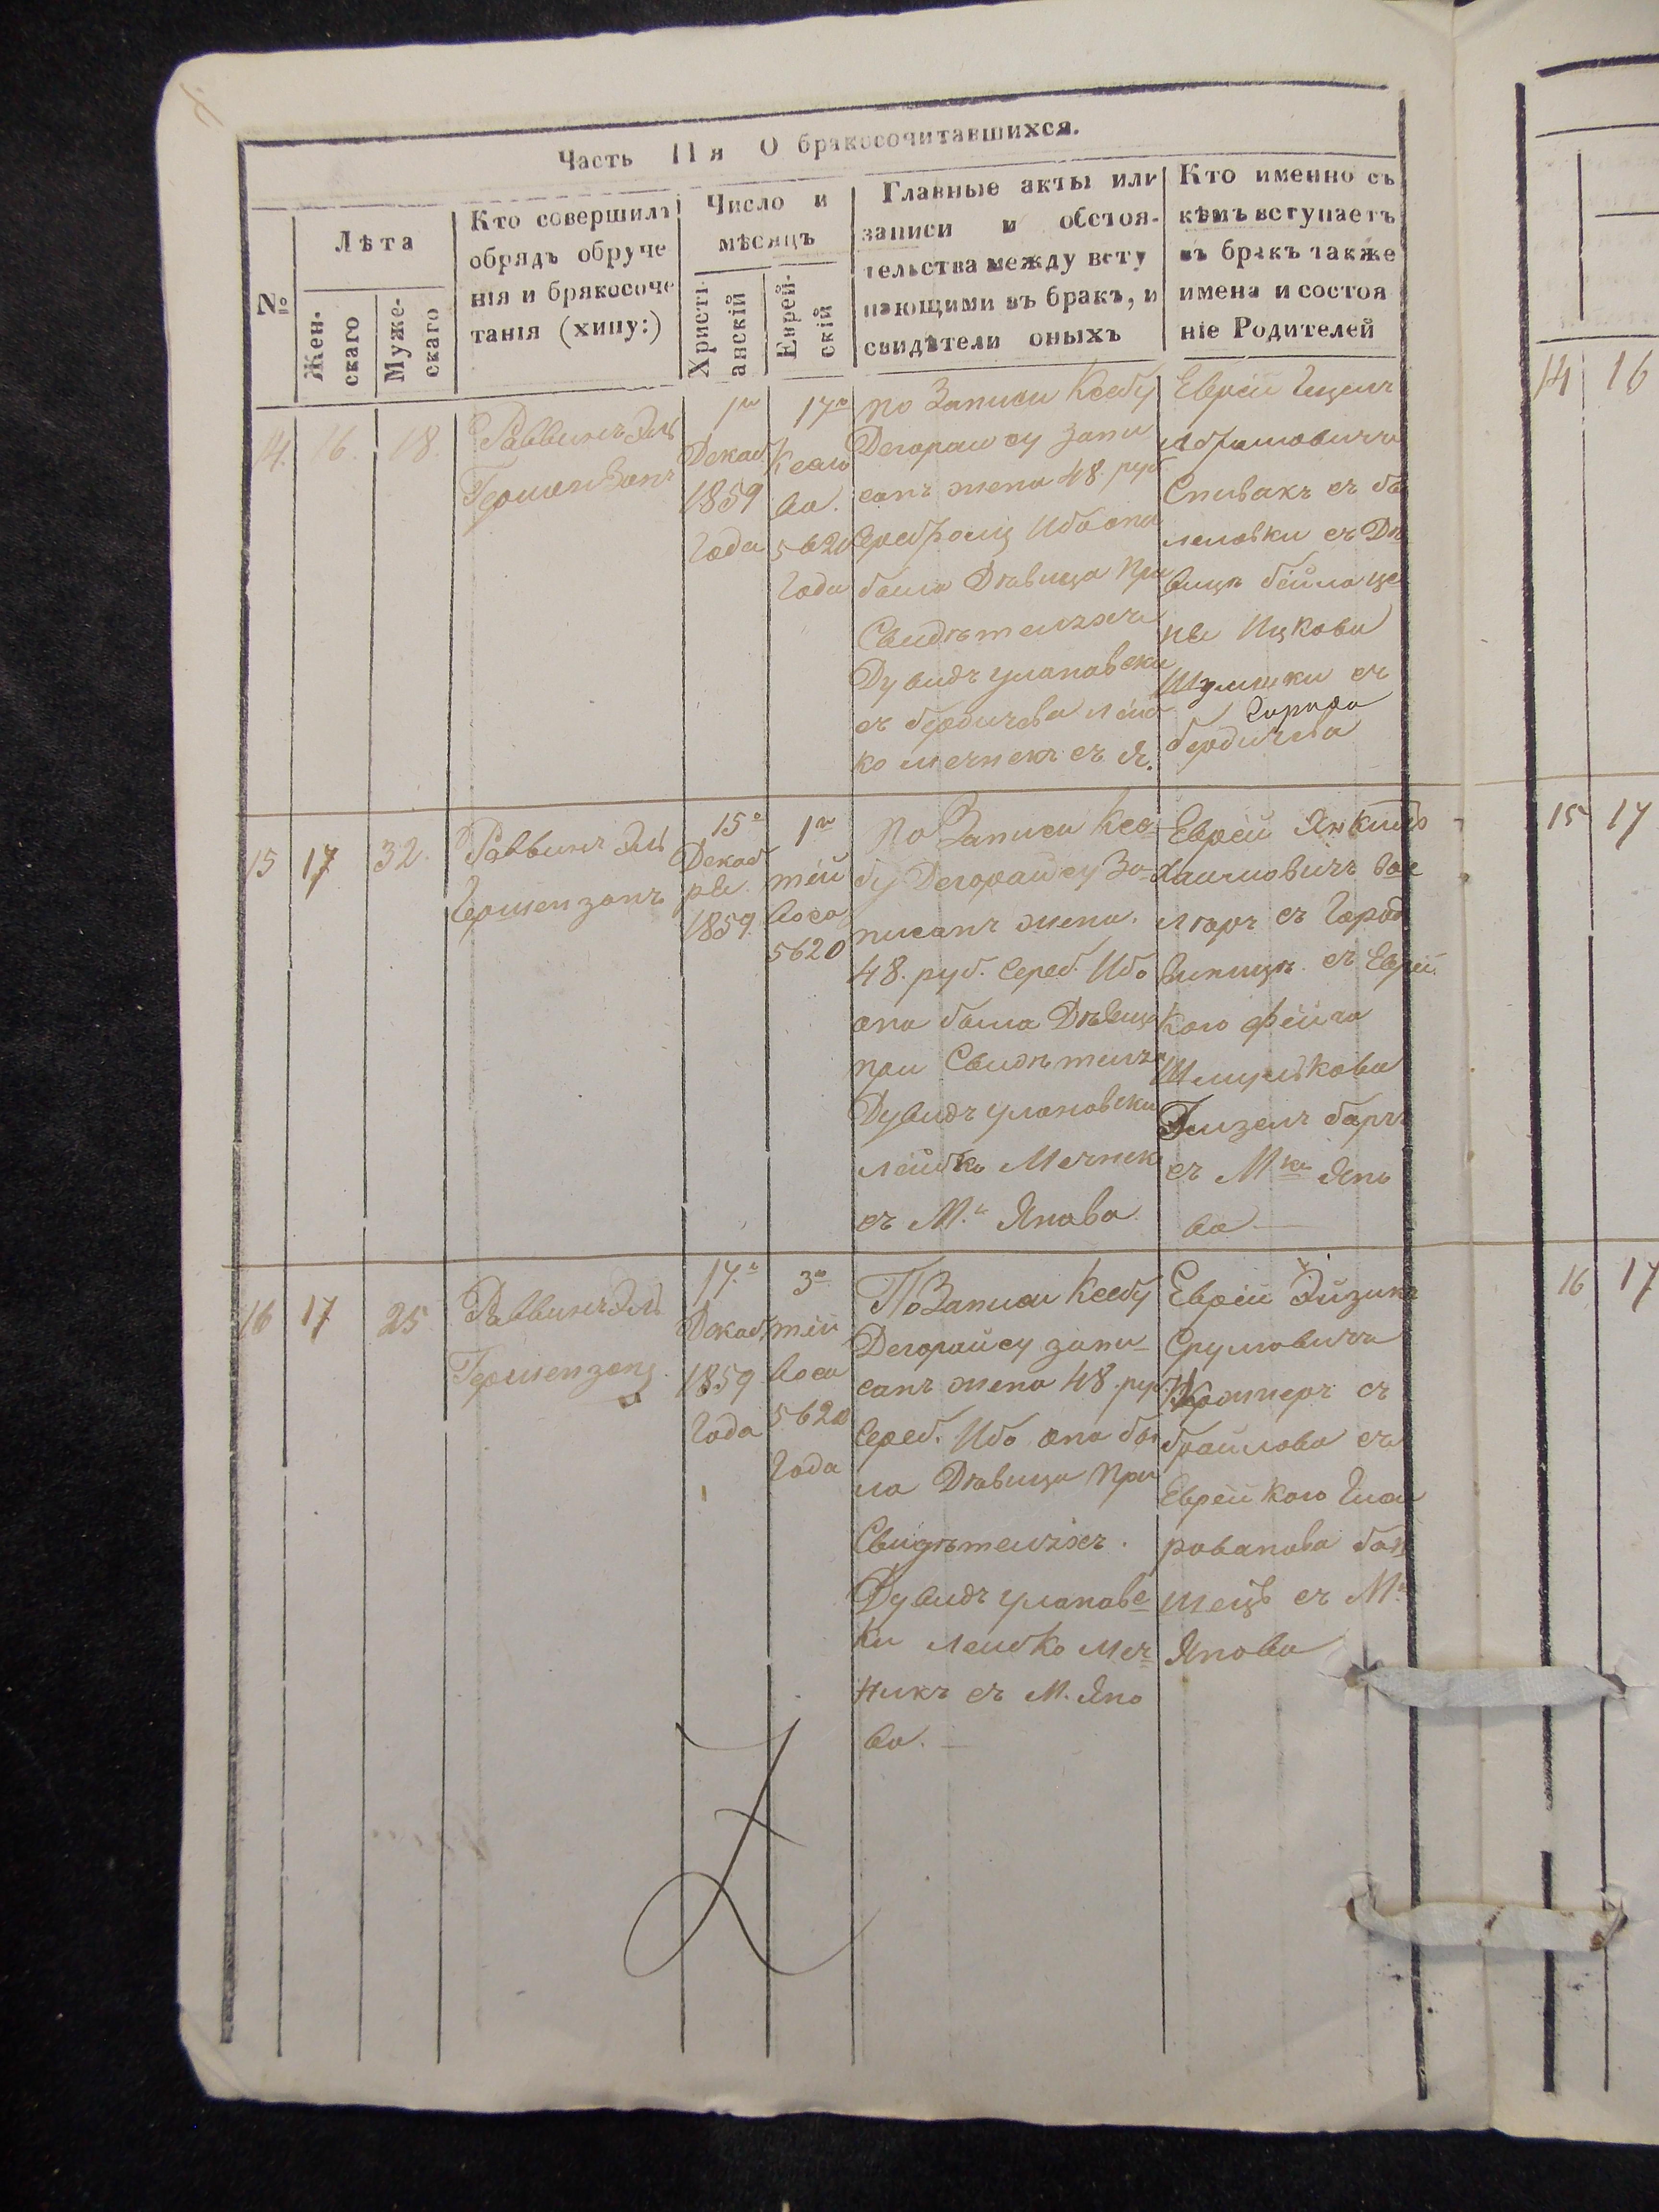 Часть IIя О бракосочитавшихся.
№
Лѣта
Женскаго
Мужескаго
Кто совершилъ
обрядъ обруче
нія и бракосоче
танія (хипу:)
Число и
мѣсяцъ
Христі-
анскій
Еврей-
скій
Главные акты или
записи и обстоя-
тельства между всту
пающими въ бракъ, и
свидѣтели оныхъ
Кто именно съ
кѣмъ вступаетъ
въ бракъ также
имена и состоя
ніе Родителей
14. 16. 18.
Раввинъ Эль
Гершензонъ
1го
Декаб
1859
Года
17го
Кесле
ва.
5620
Года
по Записи Ксебу
Дегорайсу запи
санъ жена 48. руб
Ибо она
была Дѣвица При
Свидѣтеляхъ
Дувидъ улановски
съ бердичева Лейб
ко мечнекъ съ Я.
Еврей
Абрамовичъ
Спивакъ съ бѣ
ловки съ Дѣ
вицѣ бейла це
пы Ицкова
съ
Города
бердичева
15 17 32.
Раввинъ Эль
Гершензонъ
15го
Декаб
ря.
1859
1го
тей
веса
5620
По Записи Ксе-
бу Дегорайсу За-
писанъ жена.
48. руб. Сереб. Ибо
она была Дѣвица
при Свидѣтеляхъ
Дувидъ улановски
Лейбко Мечнек
съ М.ч Янова
Еврей Янкиль
Хаимовичъ Вае
съ Город
Винницѣ. съ Еврей
кою Фейга
Шмулькова
съ Мка Яно
ва —
16 17 25
Раввинъ Эль
Гершензонъ
17.го
Декаб
1859
Года
3го
тей
веса
5620
Года
По Записи Ксебу
Дегорайсу запи-
санъ жена 48. руб.
Сереб. Ибо она бы
ла Дѣвица При
Свидѣтеляхъ.
Дувидъ уланове-
ки Лейбко Меч-
никъ съ М. Яно
ва. —
Еврей Эйзикъ
Срулювичъ
съ
браилова съ
Еврейкою
съ М.
Янова
14 16
15 17
16 17